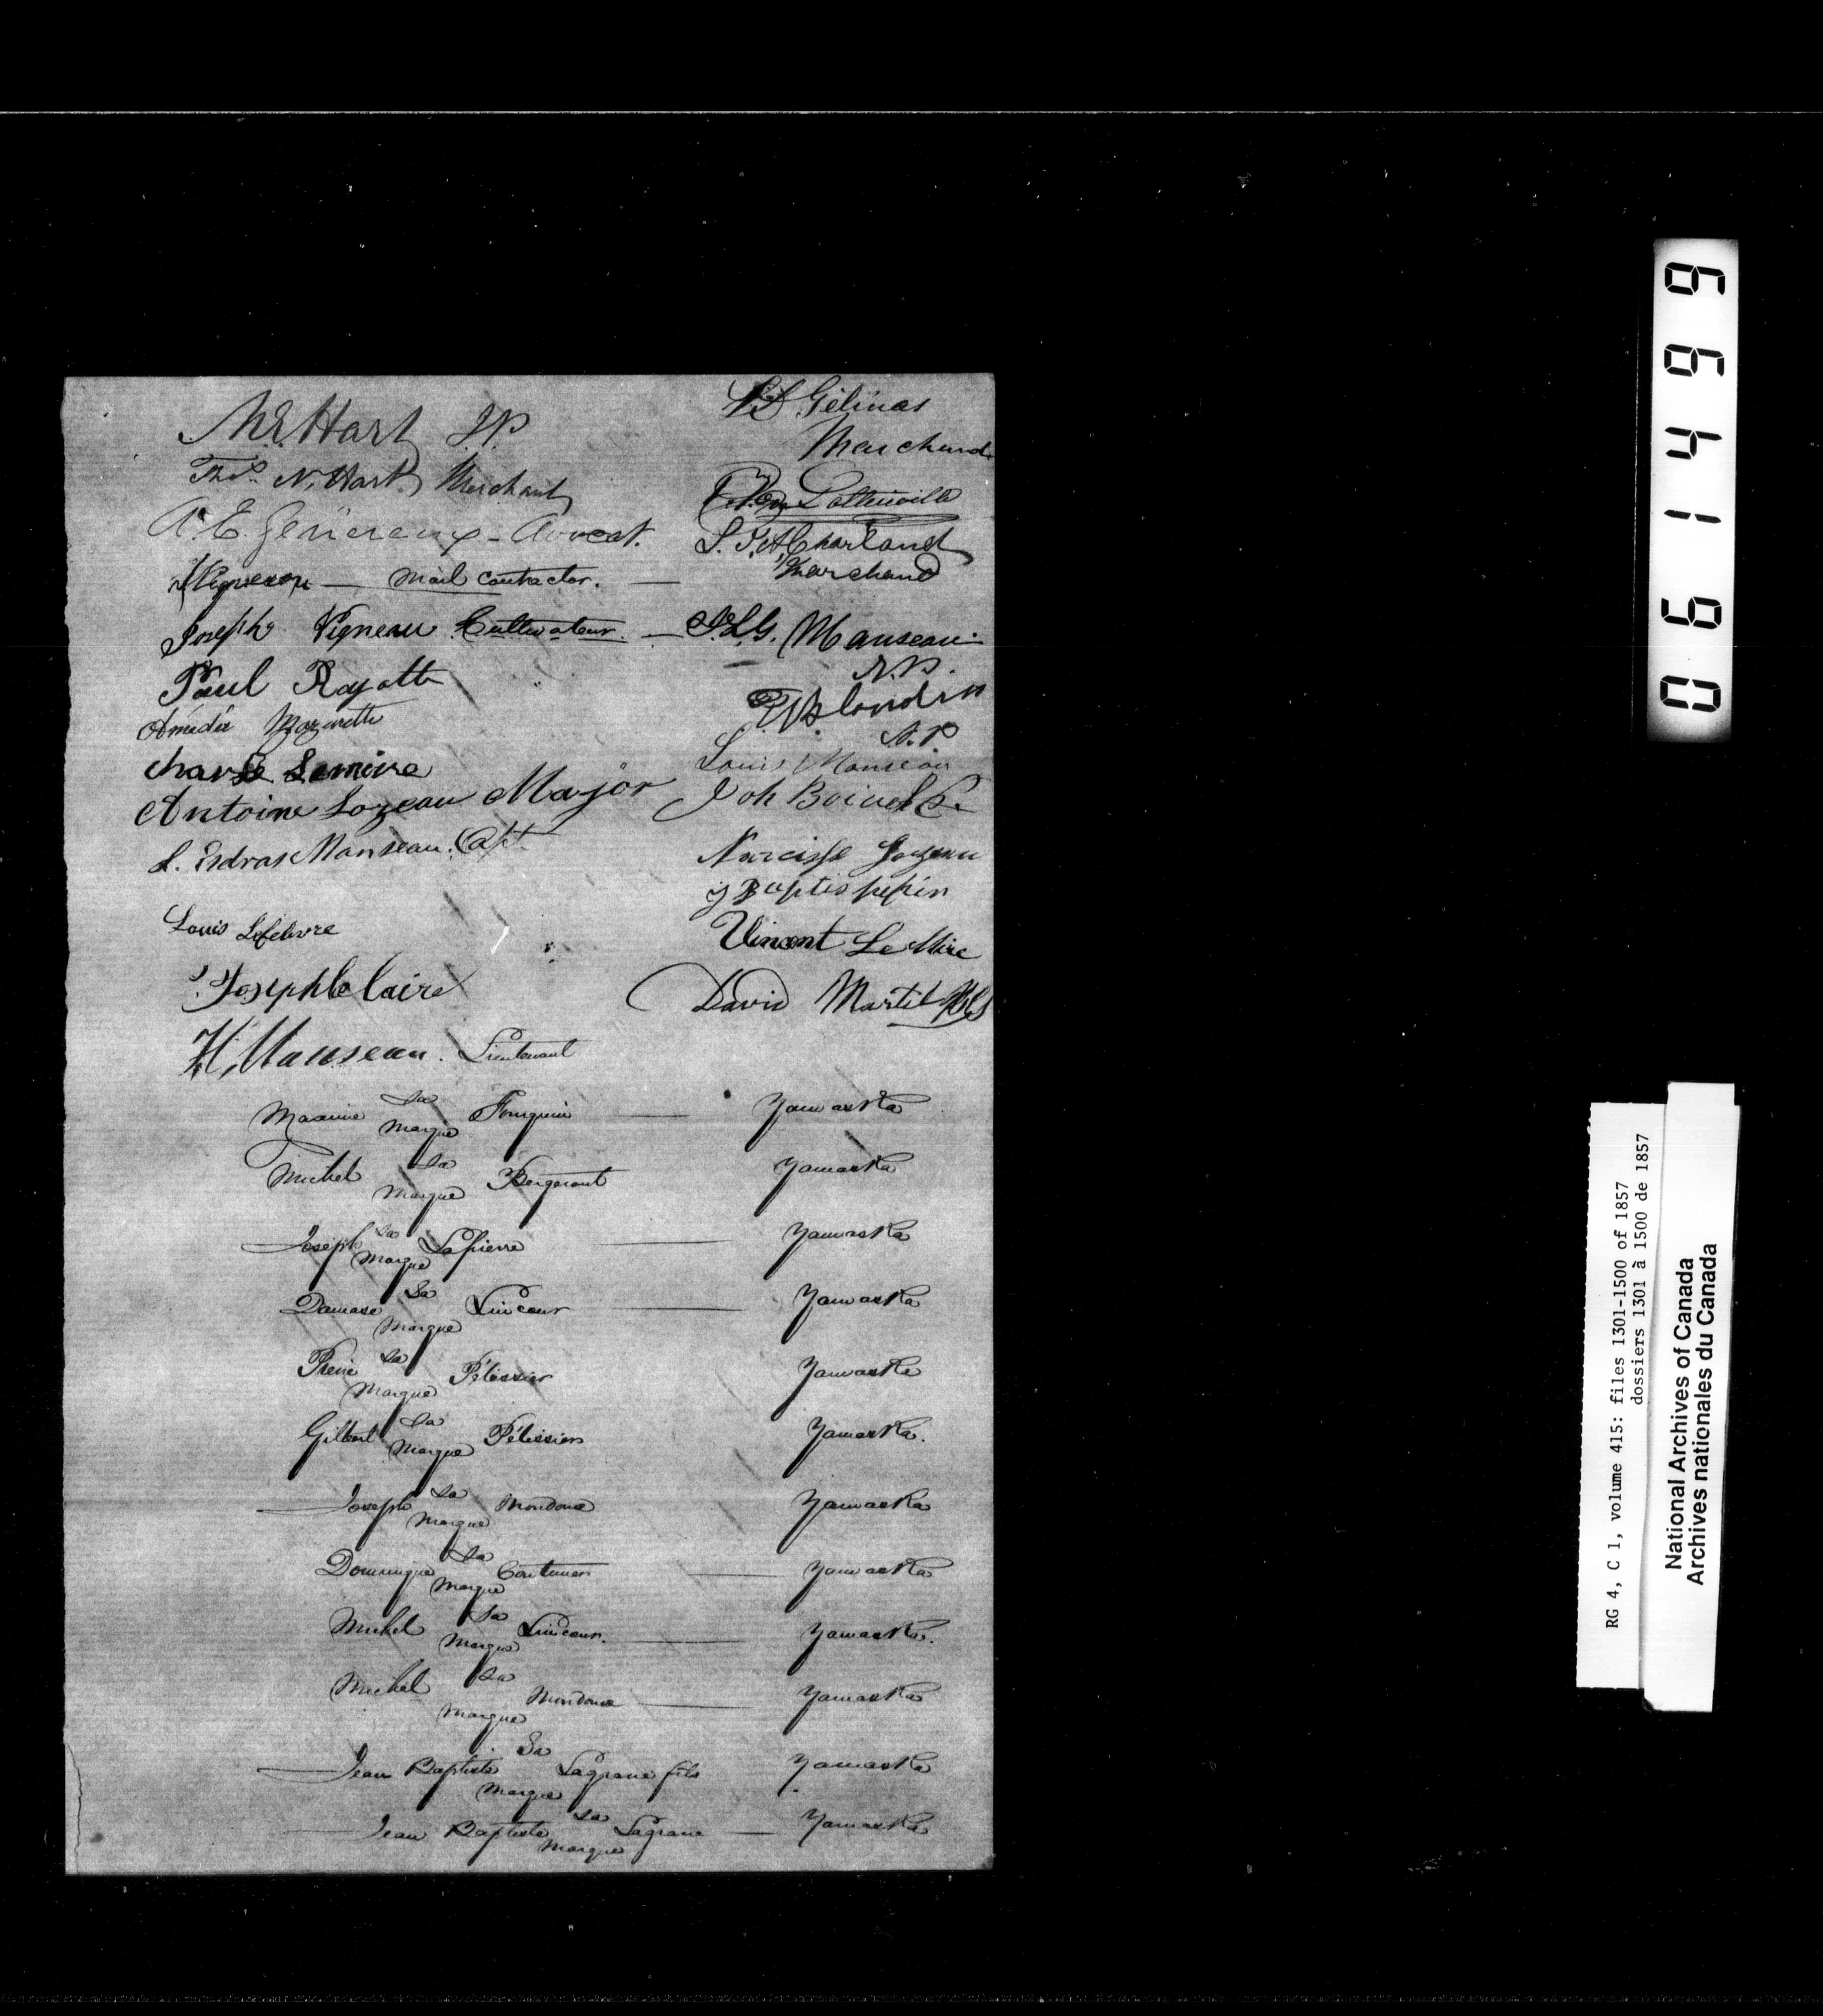 Hart J.P.
L.D. Gélinas
Marchand
Thos. N. Hart Merchant
A. E. Généreux - Avocat.
L. J. A Charland
Marchand
Vigneau — Mail Contractor. —
Joseph Vigneau Cultivateur. —
J.L.G. Manseau
N.P.
Paul Rayotte
Blondin
N.P.
Amédé Mazurette
Louis Manseau
Charle Lemire
Antoine Lozeau Major
Job Boivert
L. Esdras Manseau. Capt.
Narcisse Lozeau
j Baptis pepin
Louis Lefebvre
Vincent Le Mire
Joseph Claire
David Martel
H. Manseau. Lieutenant
Maxime sa marque Fourquin — Yamaska
Michel sa marque Bergeront Yamaska
Joseph sa marque Lapierre — Yamaska
Damase sa marque Lincour — Yamaska
Pierre sa marque Pélissier Yamaska
Gilbert sa marque Pélissier Yamaska.
Joseph sa marque Mondoux Yamaska
Dominique sa marque — Yamaska
Michel sa marque Lincour. — Yamaska.
Michel sa marque Mondoux — Yamaska
Jean Baptiste sa marque Lagrave fils Yamaska
Jean Baptiste sa marque Lagrave — Yamaska
061499
RG 4, C 1, volume 415: files 1301-1500 of 1857
dossiers 1301 à 1500 de 1857
National Archives of Canada
Archives nationales du Canada